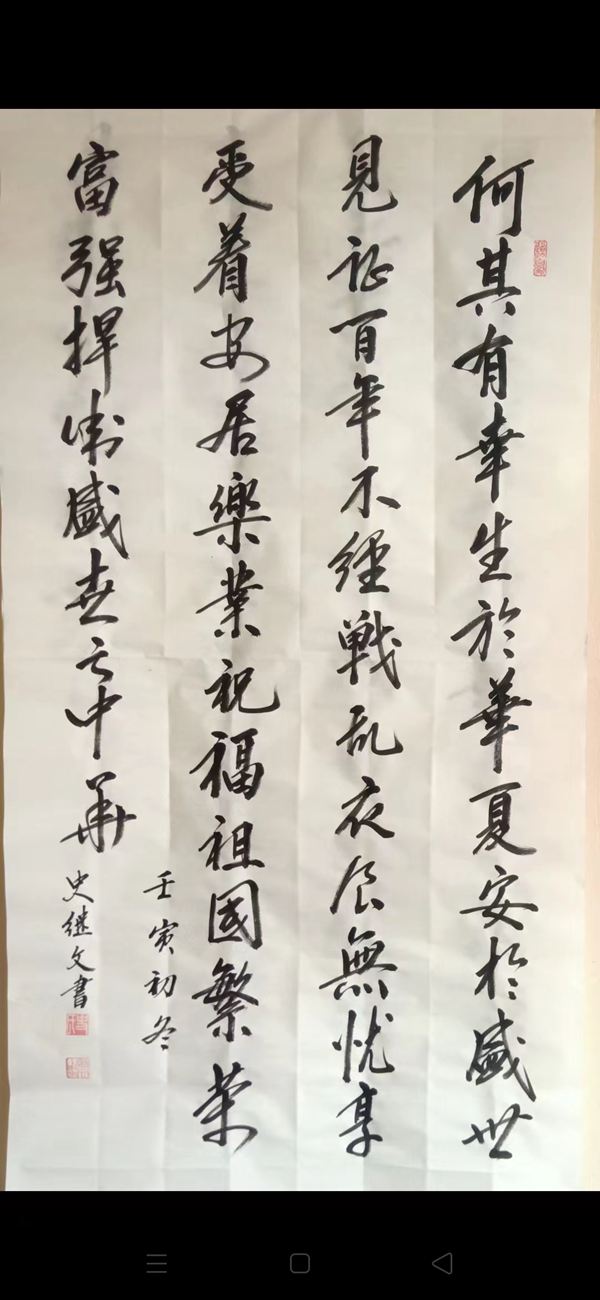 何其有幸生於華夏安於盛世
見证百年不經戦乱衣食無忧享
受着安居樂業祝福祖國繁荣
富强捍衛盛世之中華
壬寅初冬
史继文書